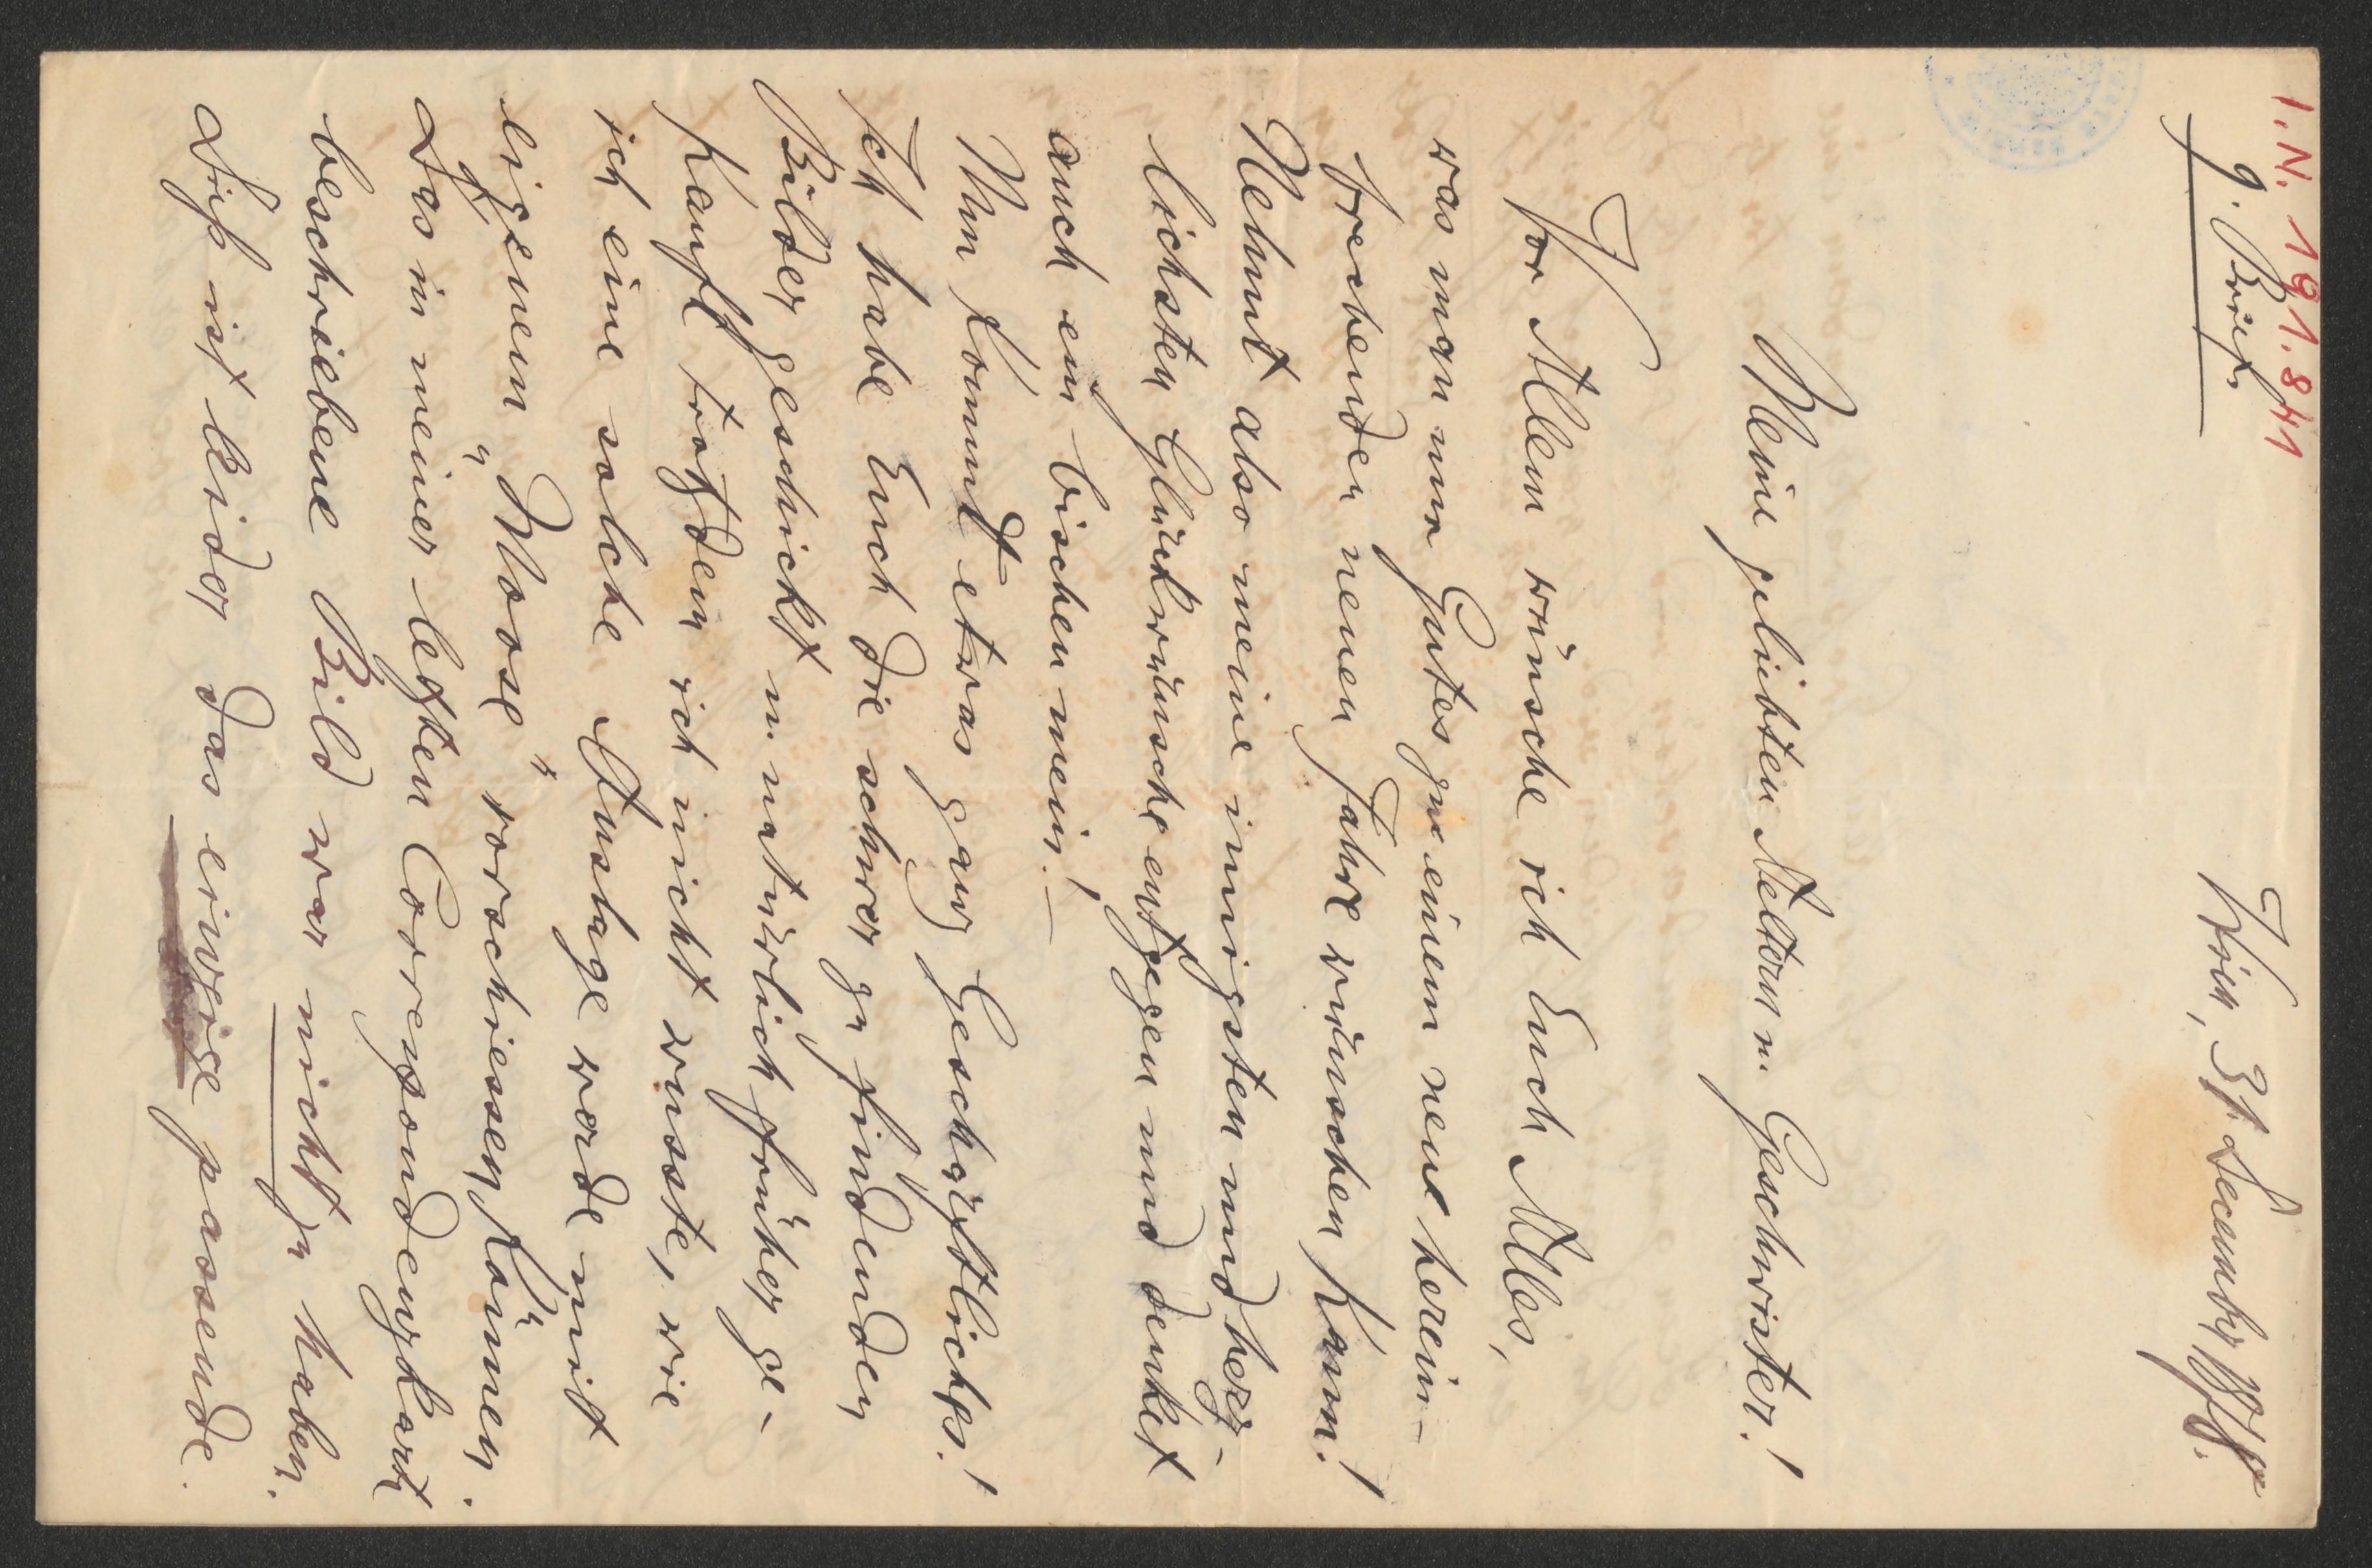 I. N. 191.841
9. Brief.
Wien, 31 December
Meine geliebten Aeltern u. Geschwister!
Vor Allem wünsche ich Euch Alles,
was man nur Gutes zu einem neu herein-
brechenden neuen Jahre wünschen kann!
Nehmt also meine innigsten und herz-
lichsten Glückwünsche entgegen und denket
auch ein bischen mein! –
Nun kommt etwas ganz Geschäftliches!
Ich habe Euch die schwer zu findenden
Bilder geschickt u. natürlich früher ge-
kauft trotzdem ich nicht wusste, wie
ich eine solche Auslage werde mit
eigenem "Moose" vorschiessen können.
Das in meiner letzten Correspondenzkarte
beschriebene Bild war nicht zu haben.
Dieß ist leider das einzige passende.